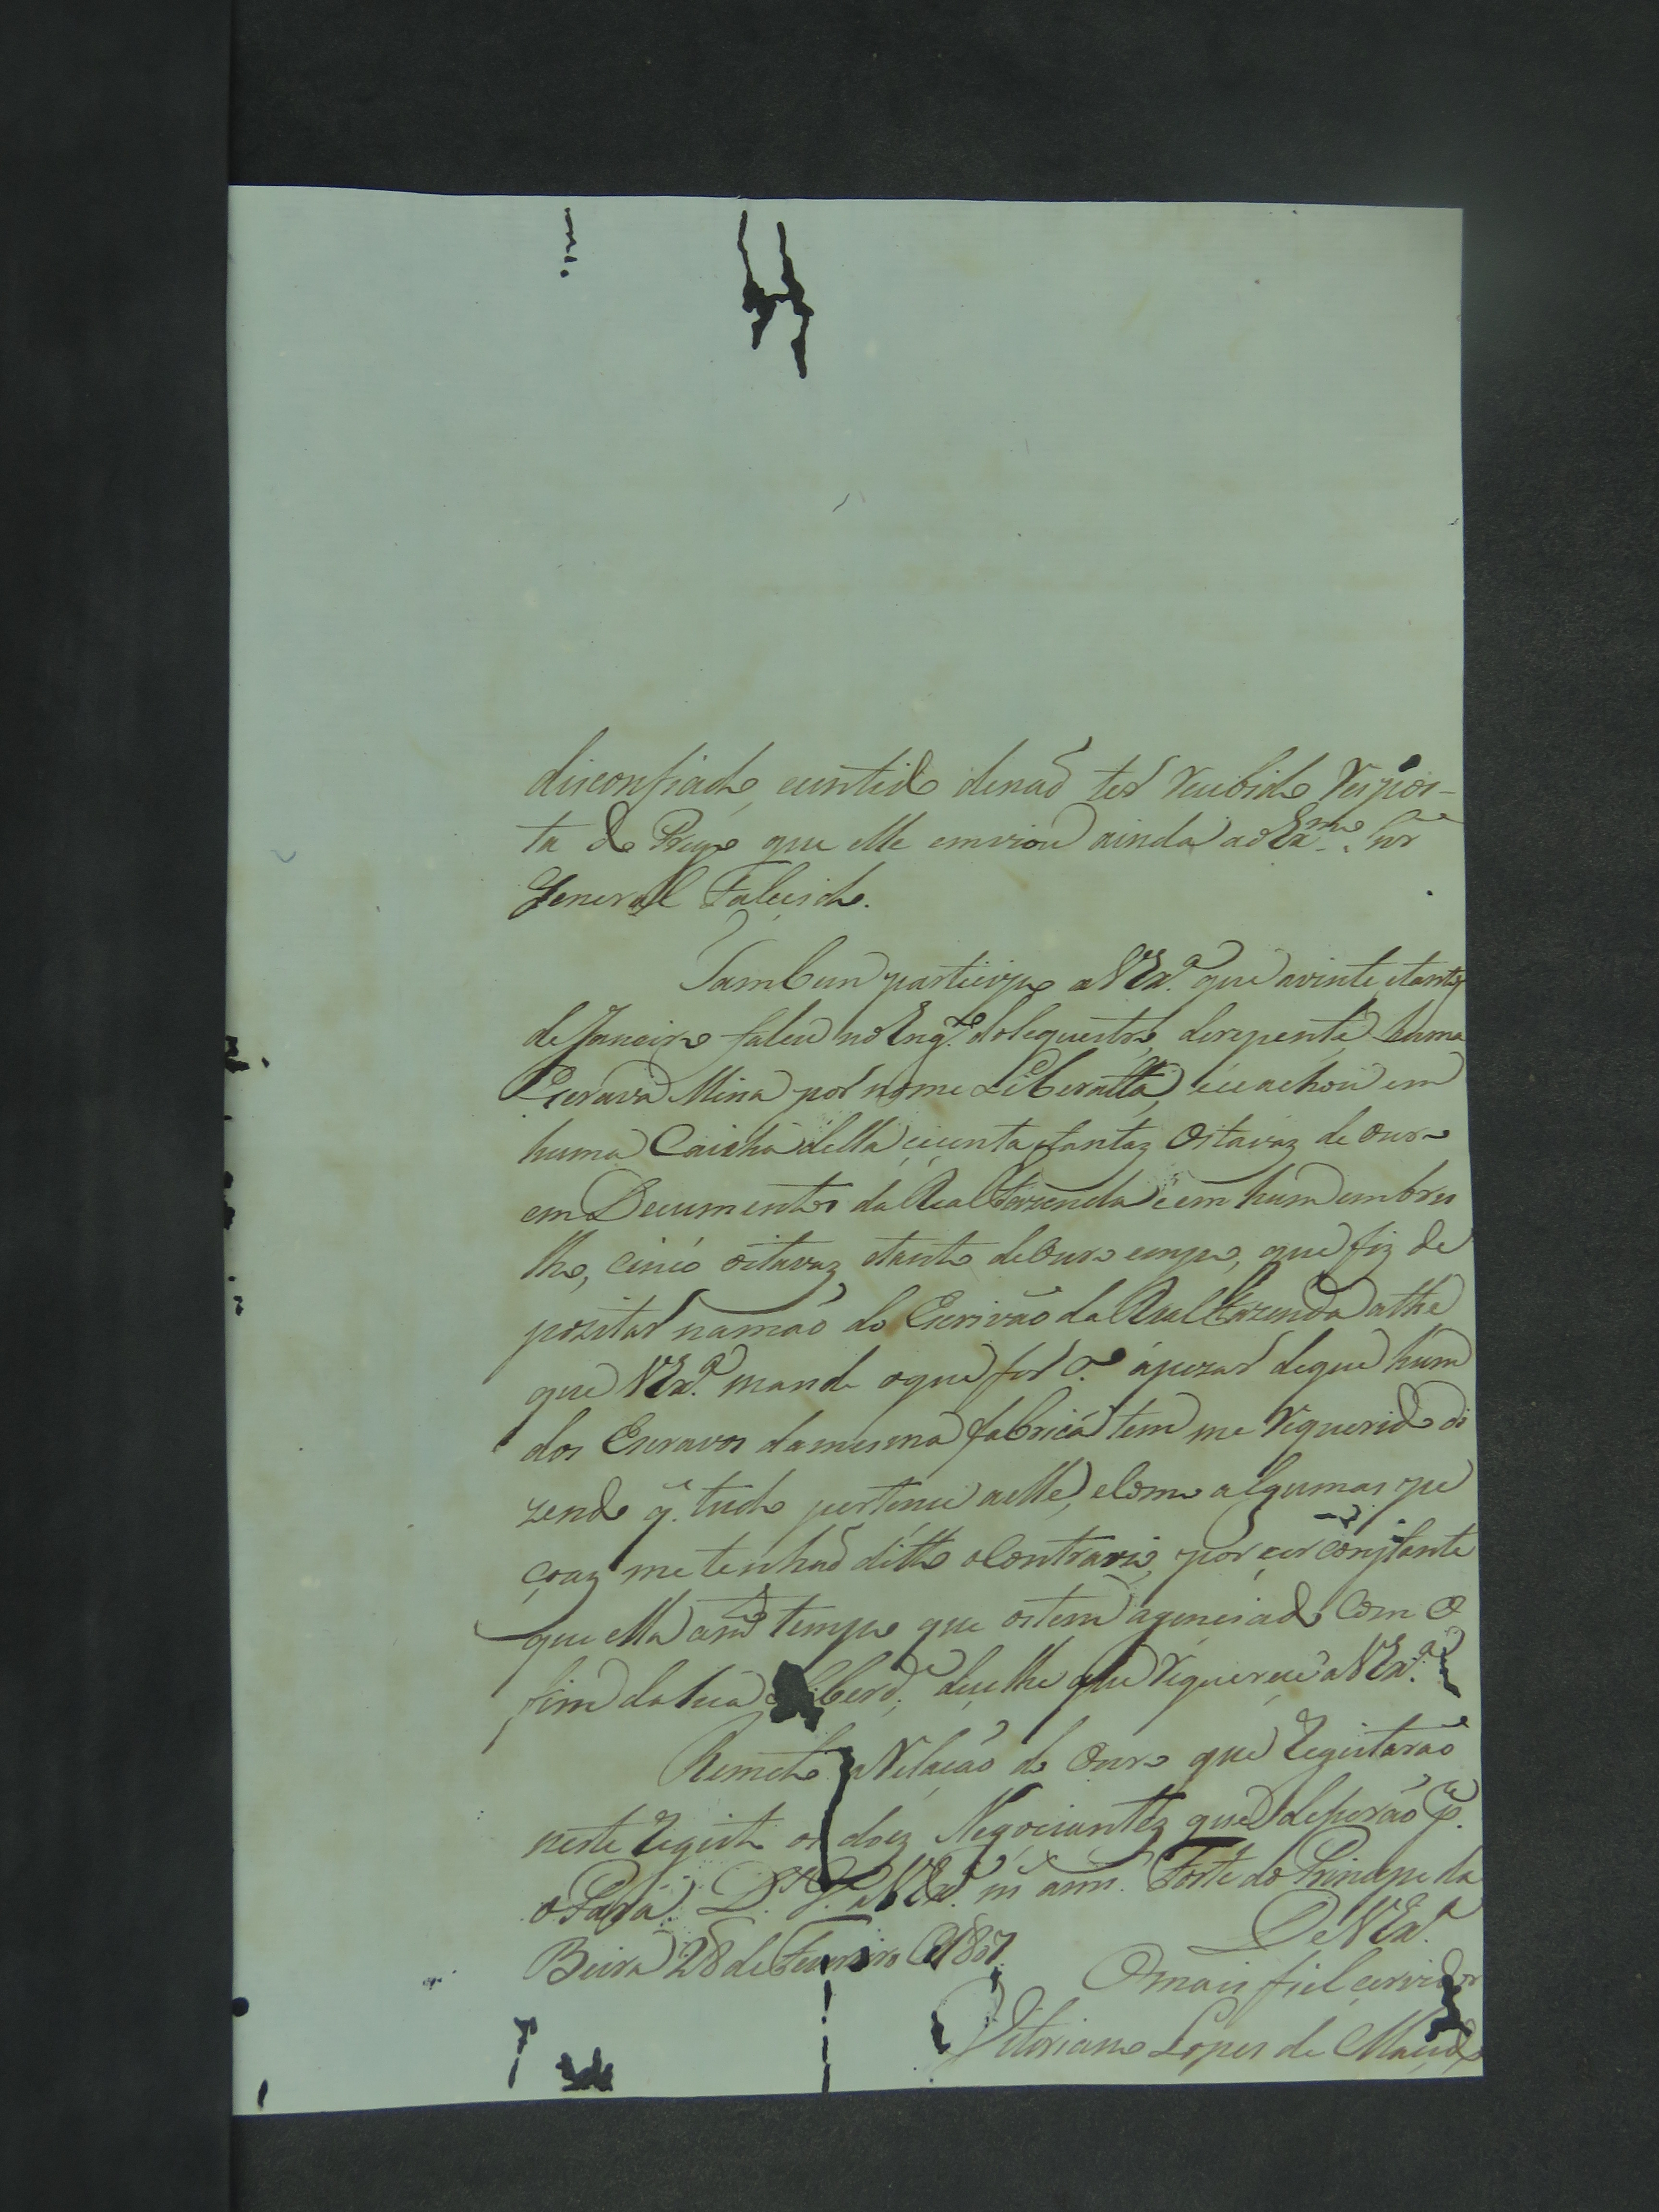 disconfiado, e sintido denaõ ter recebido respos-
ta do Prezo que elle emviou ainda ao Ex.mo Snr
General Falecido.
Tambem participo a V Ex.ª que a vinte e tantos
de Janeiro faleceu no Eng.º do Sequestro, derepente huma
Escrava Mina por nome Liberatta, e se achou em
huma Caicha della secenta e tantaz Oitavaz de Ouro
em Decumentos da Real Fazenda e em hum embru
lho, cinco oitavaz e tanto de Ouro em po, que fiz de
pozitar na maõ do Escrivaõ da Real Fazenda athe
que V Ex.ª mande o que for apezar de que hum
dos Escravos da mesma fabrica tem me requerido di
zendo q. tudo pertence a elle, e Como algumas pe
çoaz me tenhaõ ditto o Contrario, por ser constante
que ella a tempo que os tem agenciado Com o
fim da sua Liberd.e disse lhe que requerece a V Ex.ª
Remeto a Relaçaõ do Ouro que Registaraõ
neste Registo os doiz Negociantez que desceraõ p.
o Pará. D.s G.e a V Ex.ª m.s ann.s Forte do Principe da
Beira 28 de Fevereiro de 1807
De V Ex.ª
O mais fiel servidor
Vitoriano Lopes de Macedo